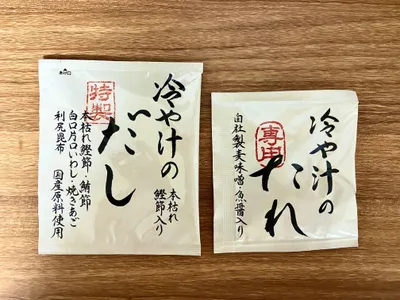 冷や汁の
だし
特製
本枯れ
鰹節入り
本枯れ鰹節・鯖節
白口片口いわし・焼きあご
利尻昆布 国産原料使用
冷や汁の
たれ
専用
自社製麦味噌・魚醤入り